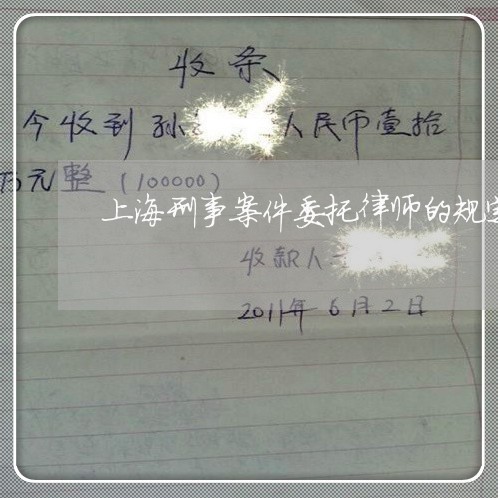 收条
今收到孙 人民币壹拾
万元整（100000）
上海刑事案件委托律师的规定
收款人
2011年6月2日